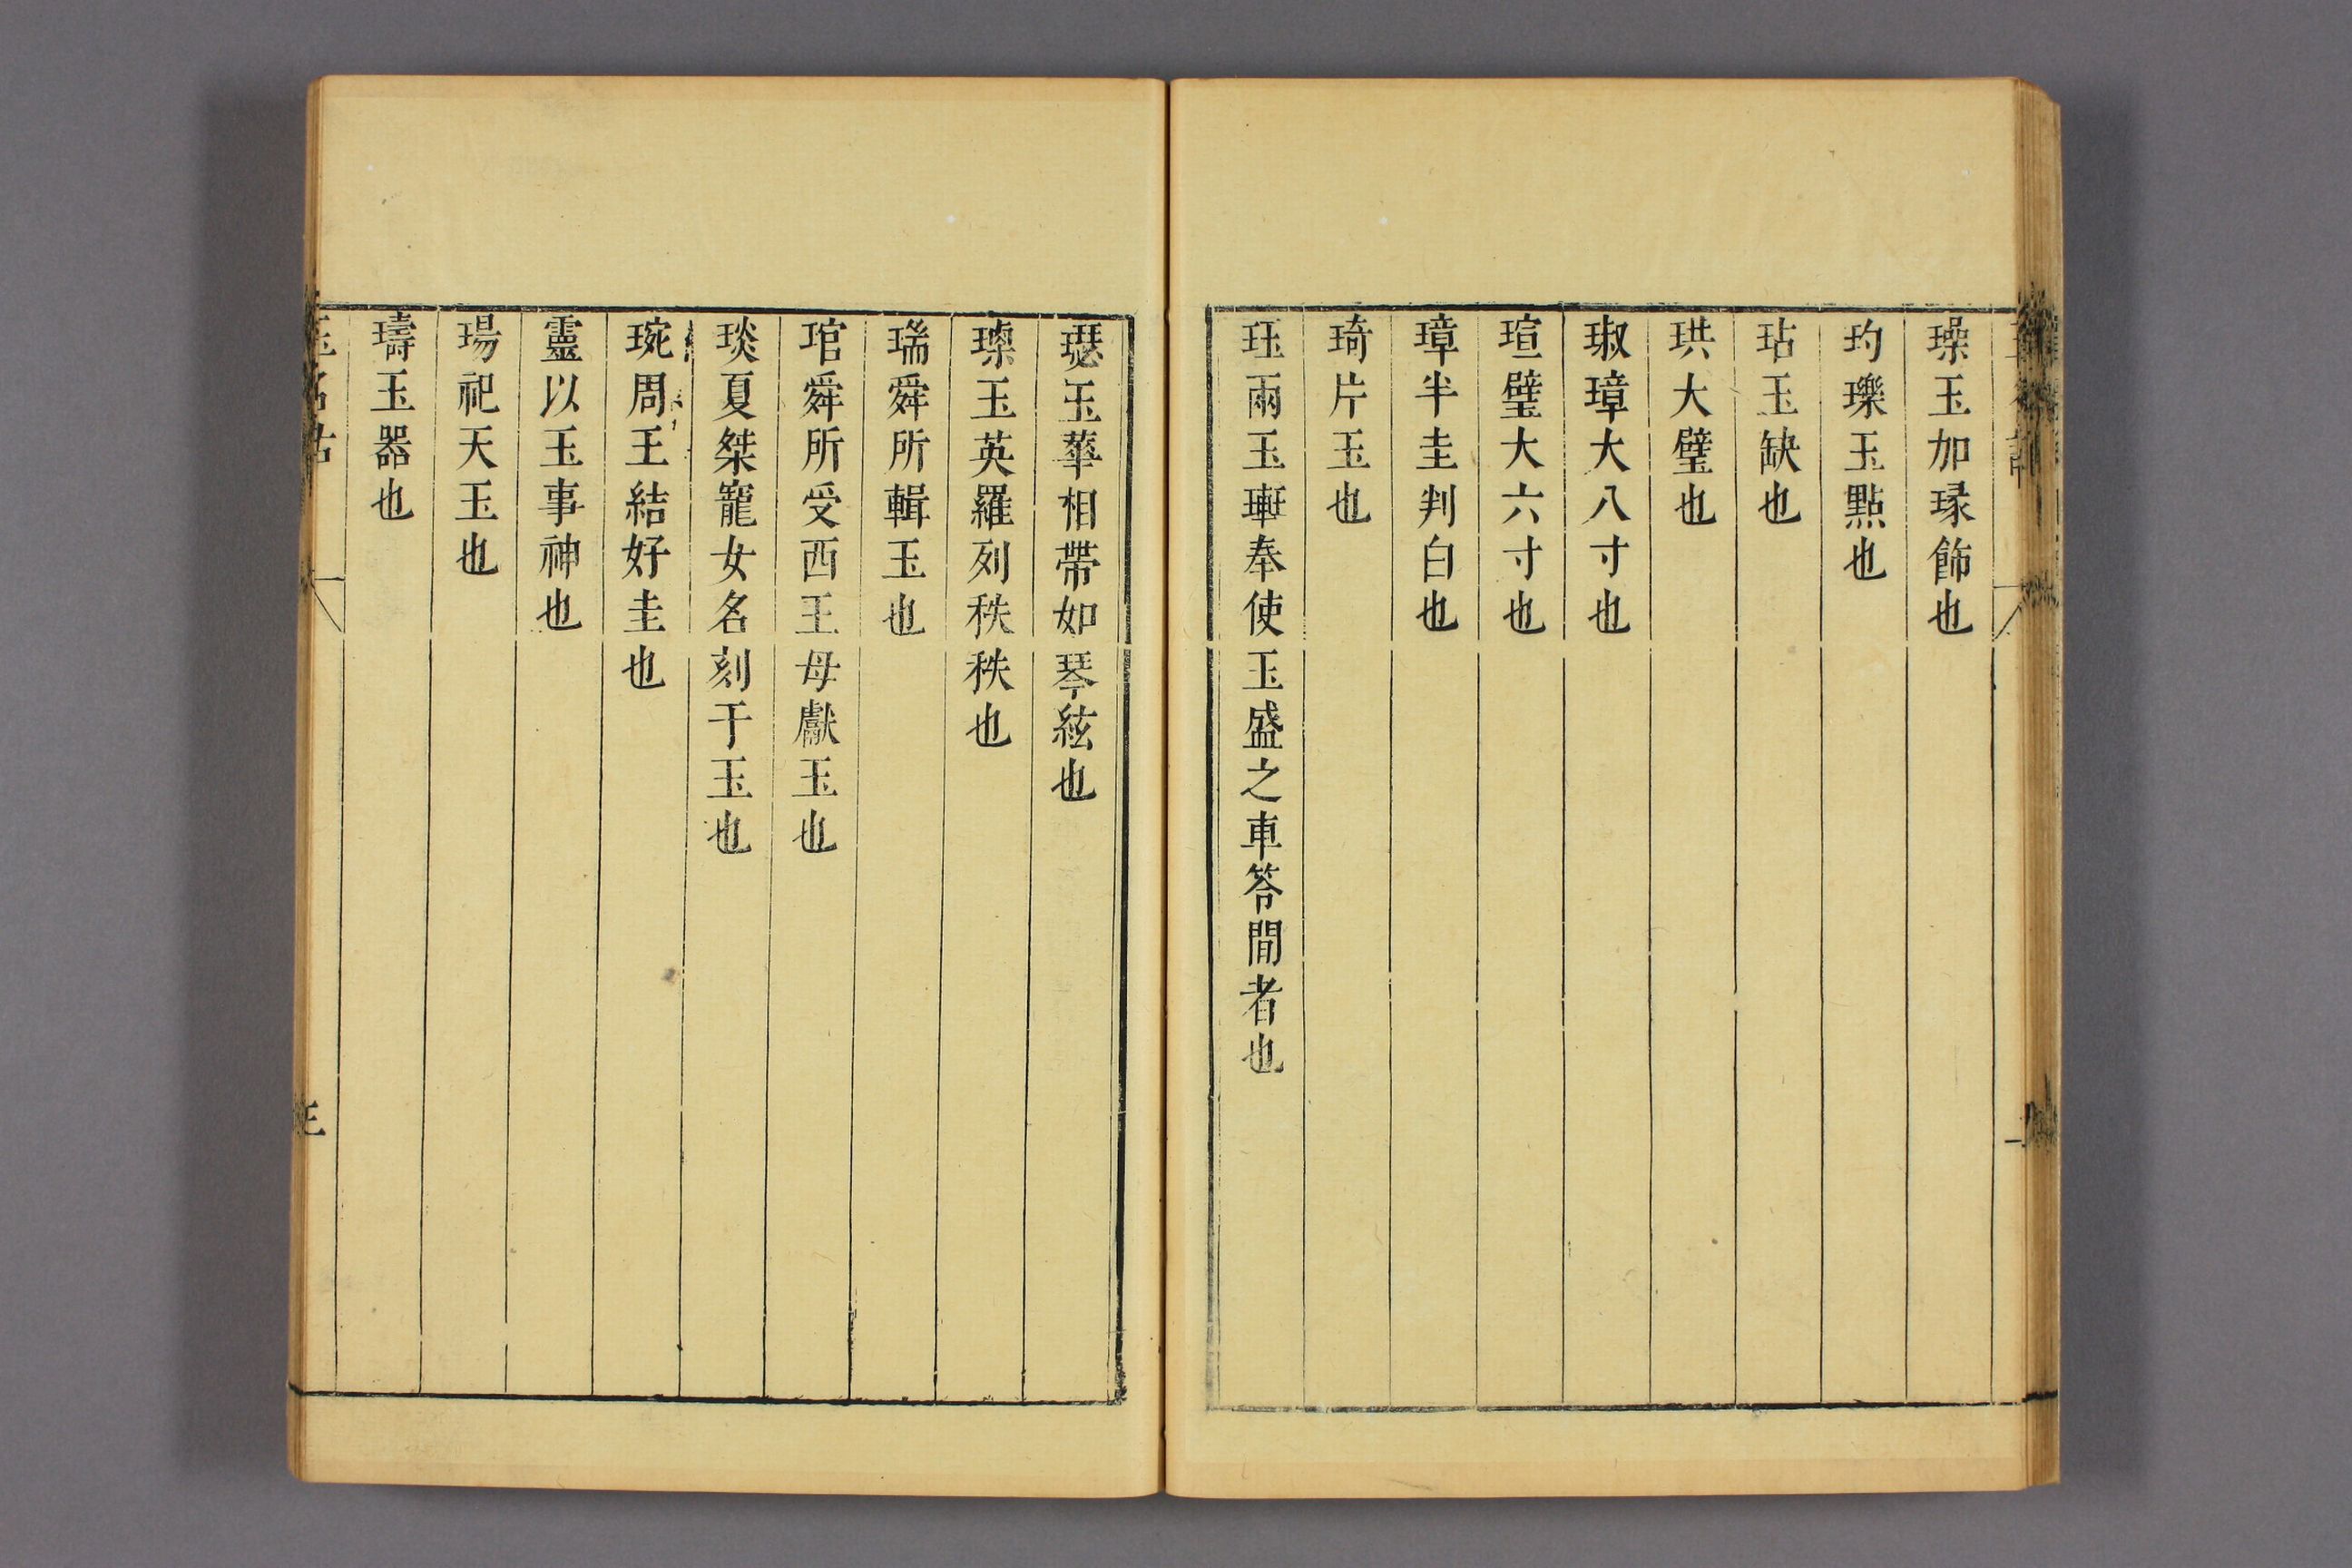 璪玉加瑑飾也
玓瓅玉點也
玷玉缺也
珙大璧也
琡璋大八寸也
瑄璧大六寸也
璋半圭判白也
琦片玉也
珏兩玉琫奉使玉盛之車笭間者也
璱玉華相帶如琴絃也
瑮玉英羅列秩秩也
瑞舜所輯玉也
琯舜所受西王母獻玉也
琰夏桀寵女名刻于玉也
琬周王結好圭也
靈以玉事神也
瑒祀天玉也
璹玉器也